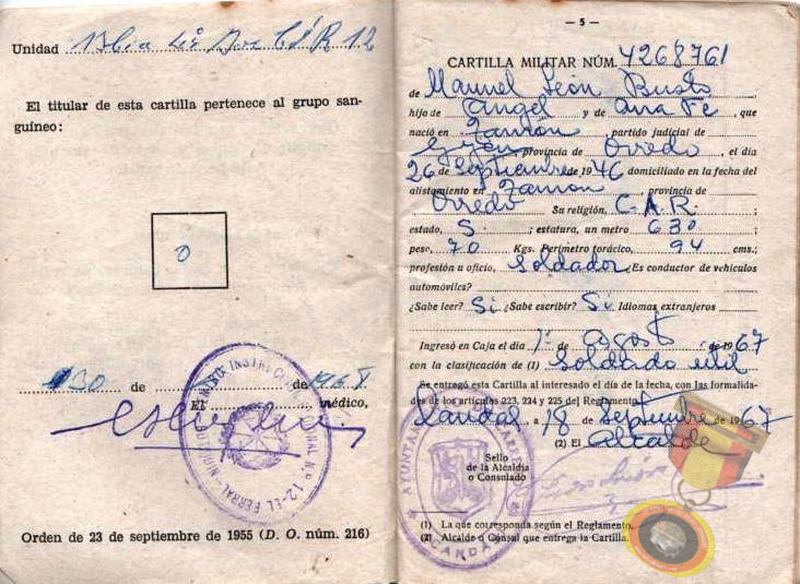 Unidad CIR 12
El titular de esta cartilla pertenece al grupo san-
guíneo:
0
30 de de 1968
El médico,
INSTRUCCION Nº 12-EL FERRAL
Orden de 23 de septiembre de 1955 (D. O. núm. 216)
— 5 —
CARTILLA MILITAR NÚM. 4268761
de Manuel León Busto
hijo de Angel y de Ana Fe, que
nació en, partido judicial de
Gijón provincia de Oviedo, el día
26 de Septiembre de 1946 domiciliado en la fecha del
alistamiento en, provincia de
Oviedo Su religión, C.A.R.;
estado, S.; estatura, un metro 630;
peso, 70 Kgs. Perímetro torácico, 94 cms.;
profesión u oficio, Soldador ¿Es conductor de vehículos
automóviles?
¿Sabe leer? Si ¿Sabe escribir? Si Idiomas extranjeros
Ingresó en Caja el día 1º de Agosto de 1967
con la clasificación de (1) Soldado util
Se entregó esta Cartilla al interesado el día de la fecha, con las formalida-
des de los artículos 223, 224 y 225 del Reglamento.
a 18 de Septiembre de 1967
(2) El Alcalde
Sello
de la Alcaldía
o Consulado
(1) La que corresponda según el Reglamento.
(2) Alcalde o Cónsul que entrega la Cartilla.